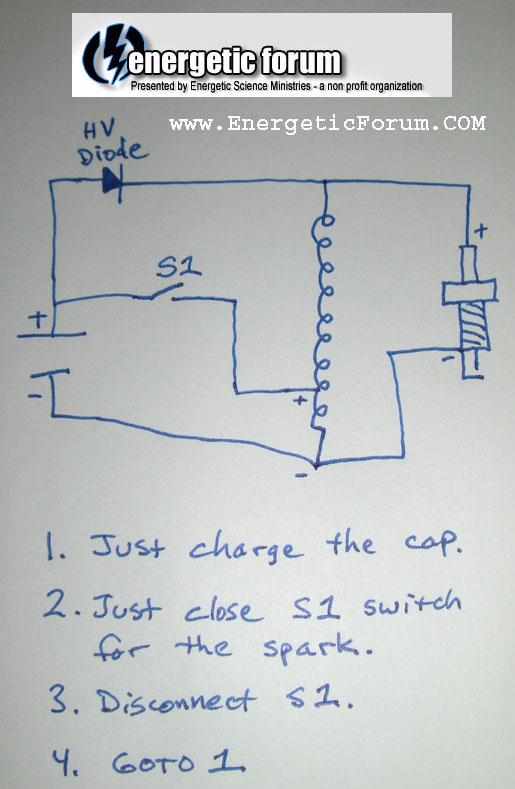 energetic forum
Presented by Energetic Science Ministries - a non profit organization
www.EnergeticForum.COM
HV
Diode
S1
+
+
-
+
-
-
1. Just charge the cap.
2. Just close S1 switch
for the spark.
3. Disconnect S1.
4. GOTO 1